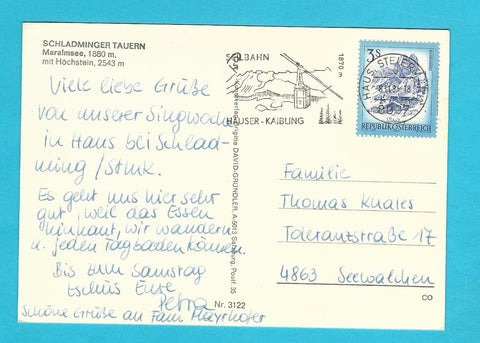 SCHLADMINGER TAUERN
Maralmsee, 1880 m,
mit Höchstein, 2543 m
Viele liebe Grüße
von unserer Singwoche
in Haus bei Schlad-
ming / Stmk.
Es geht uns hier sehr
gut, weil das Essen
hinhaut, wir wandern
u. jeden Tag baden können.
Bis zum Samstag
Tschüs Eure
Petra
Schöne Grüße an Fam. Mayrhofer
Nr. 3122
DAVID-GRÜNDLER, A-5013 Salzburg, Postf. 35
SEILBAHN
1870 m
HAUSER-KAIBLING
3S
HAUS, STEIERM
8967
REPUBLIK ÖSTERREICH
Familie
Thomas
Toleranzstraße 17
4863 Seewalchen
CO